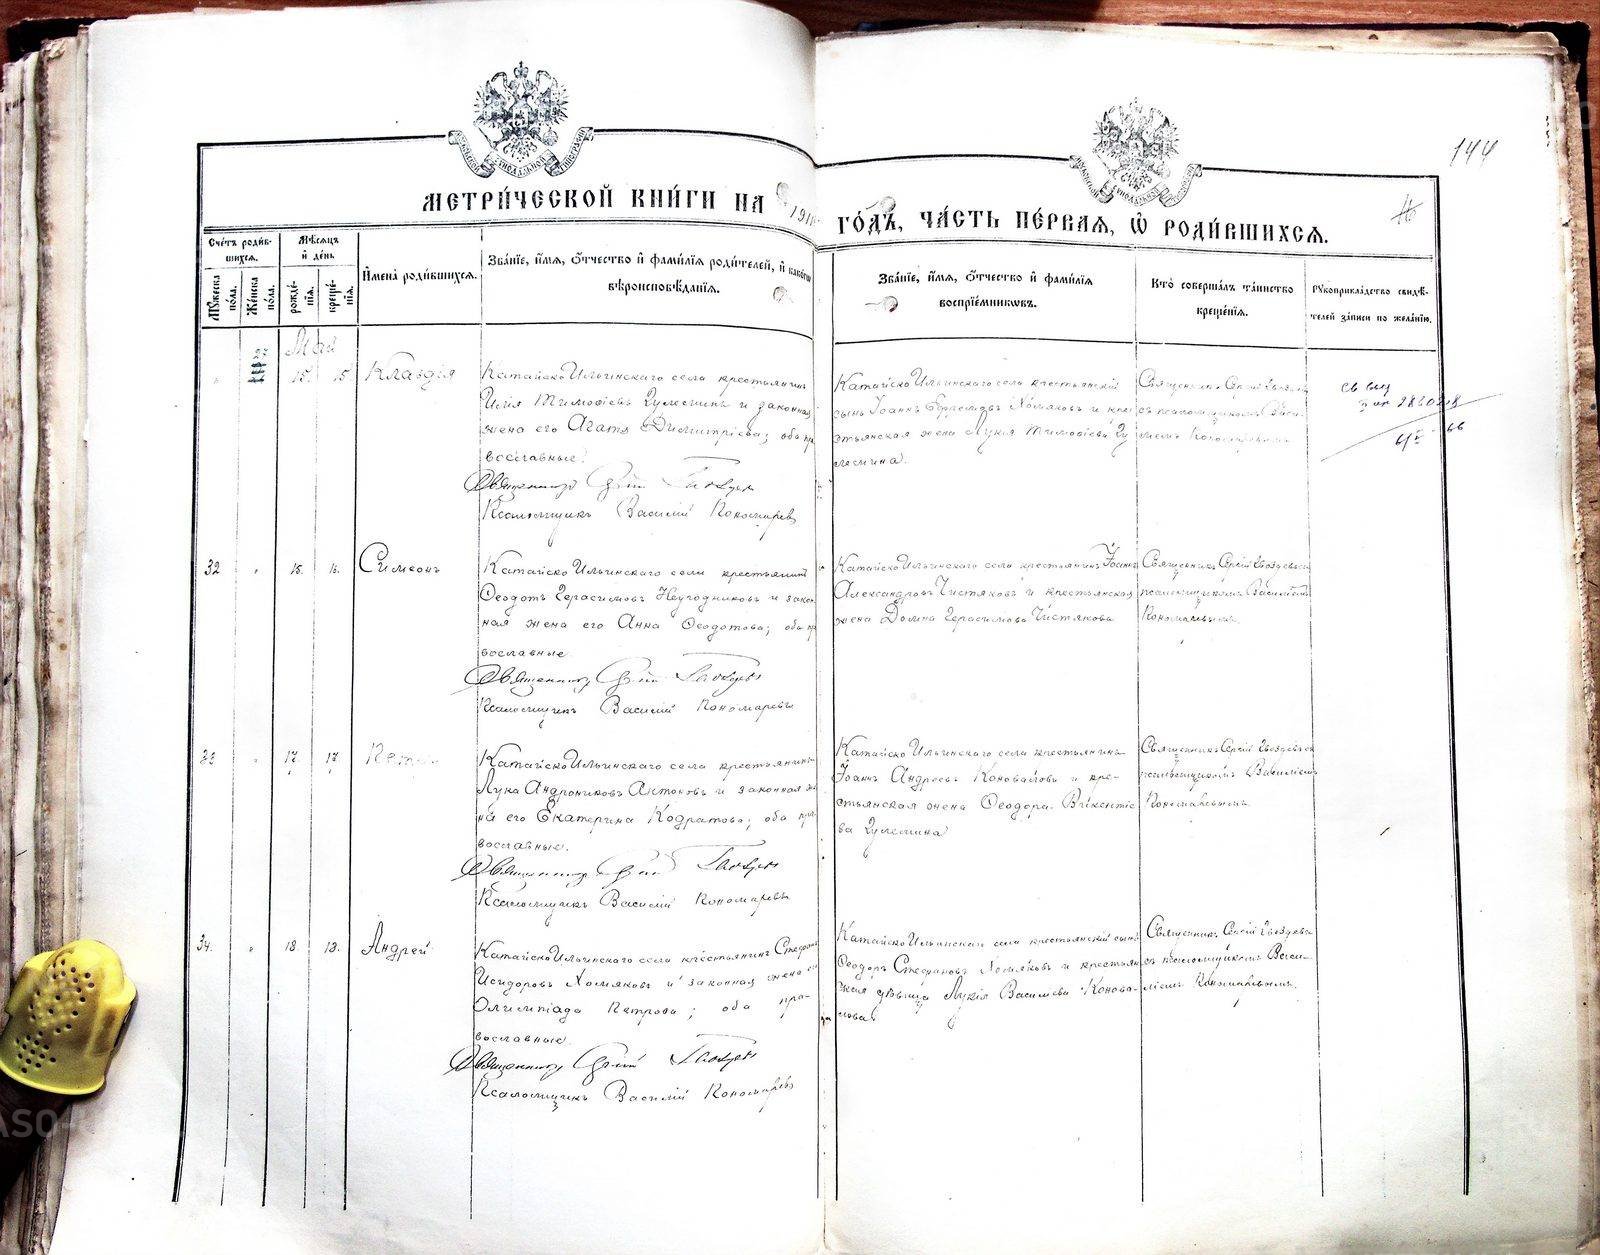 144
МЕТРИ́ЧЕСКОЙ КНИ́ГИ НА 191 ГО́ДЪ, ЧА́СТЬ ПЕ́РВАЯ, Ѽ РОДИ́ВШИХСЯ.
Сче́тъ роди́в-
шихся.
Му́жеска по́ла.
Же́нска по́ла.
Мѣ́сяцъ
и҆ де́нь
рожде́-
нія.
креще́-
нія.
И҆мена̀ роди́вшихся.
Зва́ніе, и҆́мя, ѻ҆́тчество и҆ фами́лія роди́телей, и҆ како́гѡ
вѣроисповѣ́данія.
Зва́ніе, и҆́мя, ѻ҆́тчество и҆ фами́лія
воспріе́мникωвъ.
Кто̀ соверша́лъ та́инство
креще́нія.
Рꙋкоприкла́дство свидѣ́-
телей за́писи по жела́нію.
Май
27
15. 15 Клавдія
Катайско Ильинскаго села крестьянинъ
Илія Тимофіевъ Чулемчинъ и законная
жена его Агата Димитріева; оба пра
вославные.
Священникъ Сергій Гвоздевъ
Псаломщикъ Василій Пономаревъ
Катайско Ильинскаго села крестьянскій
сынъ Іоаннъ Ефремовъ Хомяковъ и кре
стьянская жена Лукія Тимофіева Чу
лемчина.
Священникъ Сергій Гвоздевъ
съ псаломщикомъ Васи
ліемъ Пономаревымъ
32 15. 15. Симеонъ
Катайско Ильинскаго села крестьянинъ
Ѳеодотъ Герасимовъ Неугодниковъ и закон
ная жена его Анна Ѳеодотова; оба пр
вославные
Священникъ Сергій Гвоздевъ
Псаломщикъ Василій Пономаревъ
Катайско Ильинскаго села крестьянинъ Іоаннъ
Александровъ Чистяковъ и крестьянская
жена Домна Герасимова Чистякова
Священникъ Сергій Гвоздевъ съ
псаломщикомъ Василіемъ
Пономаревымъ
33 17 17 Петръ
Катайско Ильинскаго села крестьянинъ
Лука Андрониковъ Антоновъ и законная же
на его Екатерина Кодратова; оба пра
вославные.
Священникъ Сергій Гвоздевъ
Псаломщикъ Василій Пономаревъ
Катайско Ильинскаго села крестьянинъ
Іоаннъ Андреевъ Коноваловъ и кре-
стьянская жена Ѳеодора Викентіе
ва Чулемчина
Священникъ Сергій Гвоздевъ съ
псаломщикомъ Василіемъ
Пономаревымъ
34. 18. 18. Андрей
Катайско Ильинскаго села крестьянинъ Стефанъ
Исидоровъ Хомяковъ и законная жена его
Олимпіада Петрова; оба пра-
вославные
Священникъ Сергій Гвоздевъ
Псаломщикъ Василій Пономаревъ
Катайско Ильинскаго села крестьянскій сынъ
Ѳеодоръ Стефановъ Хомяковъ и крестьян
ская дѣвица Лукія Василіева Конова-
лова.
Священникъ Сергій Гвоздевъ
съ псаломщикомъ Васи-
ліемъ Пономаревымъ.